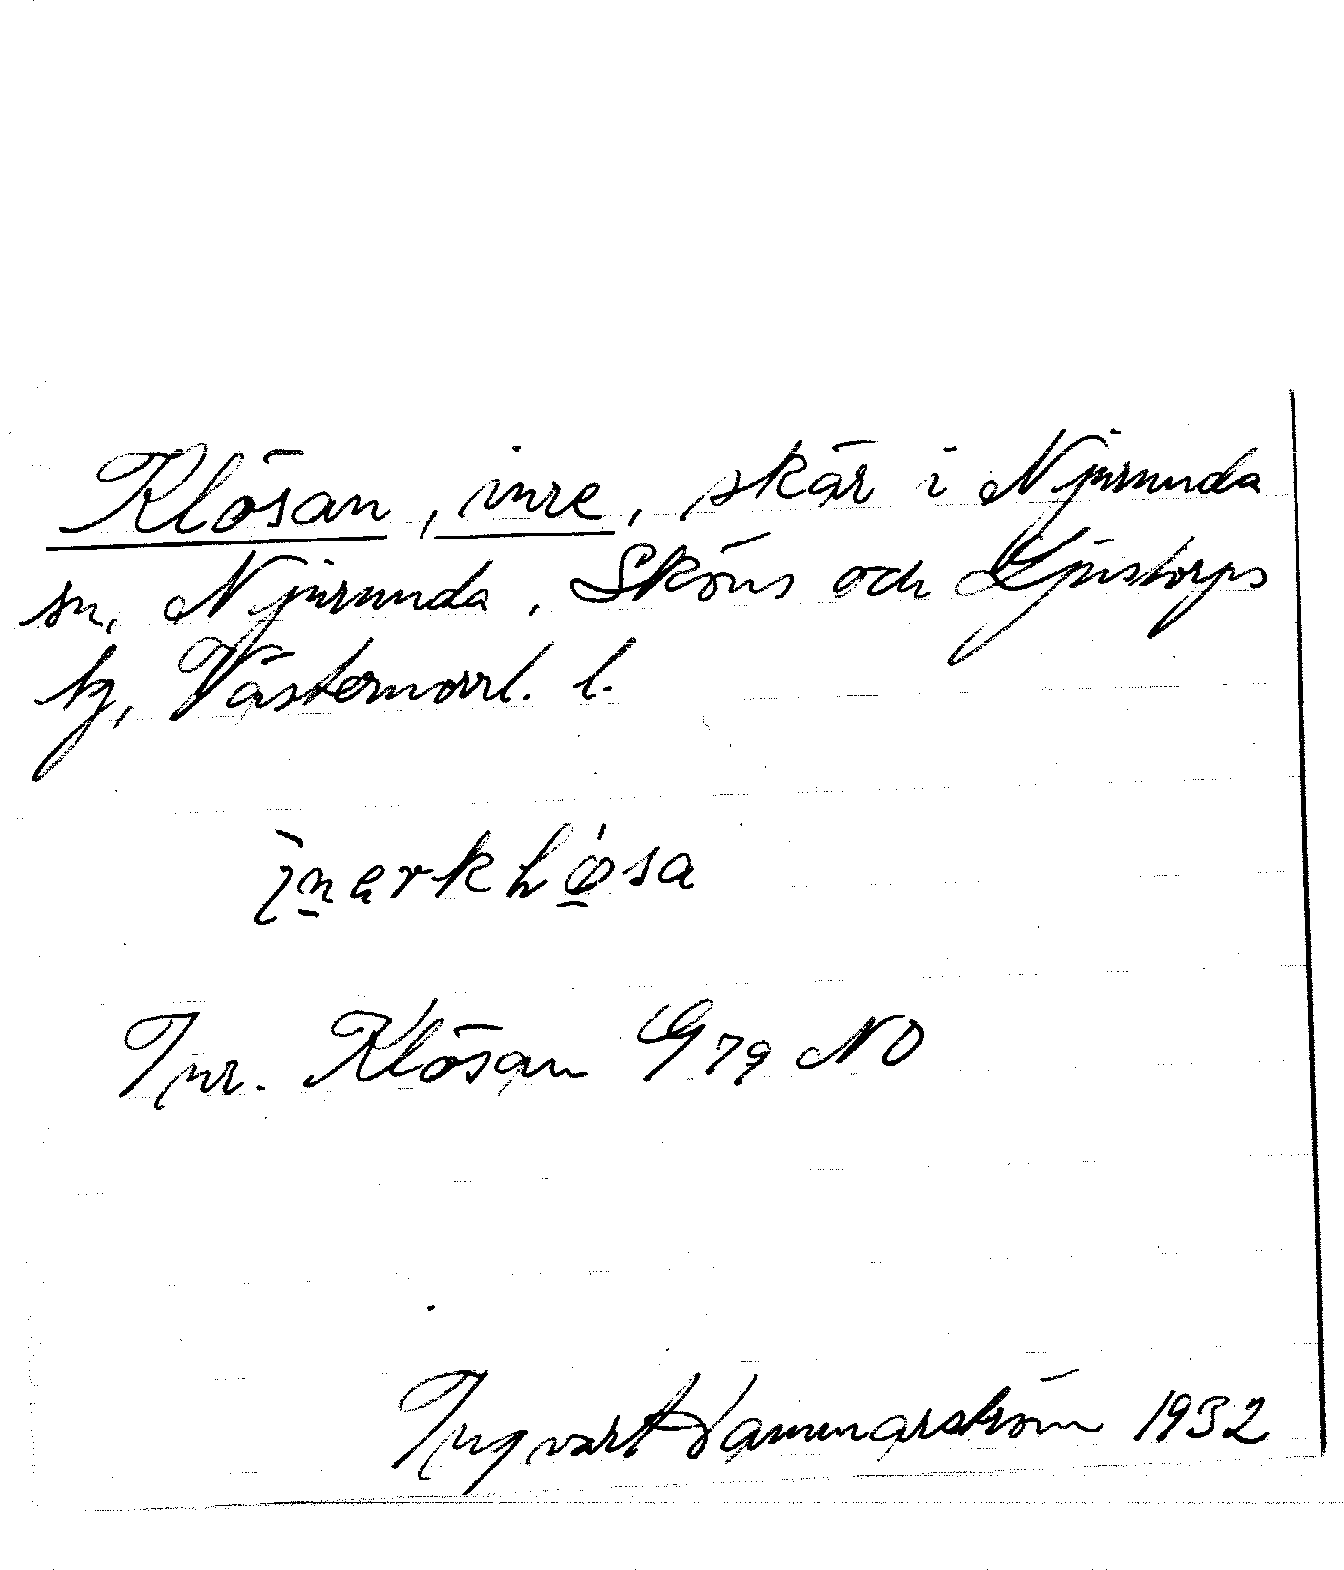 Klösan, inre, skär i Njurunda
sn, Njurunda, Sköns och Ljustorps
tg, Västernorrl. l.
Inr. Klösan G79 NO
Ingvart Hammarström 1932